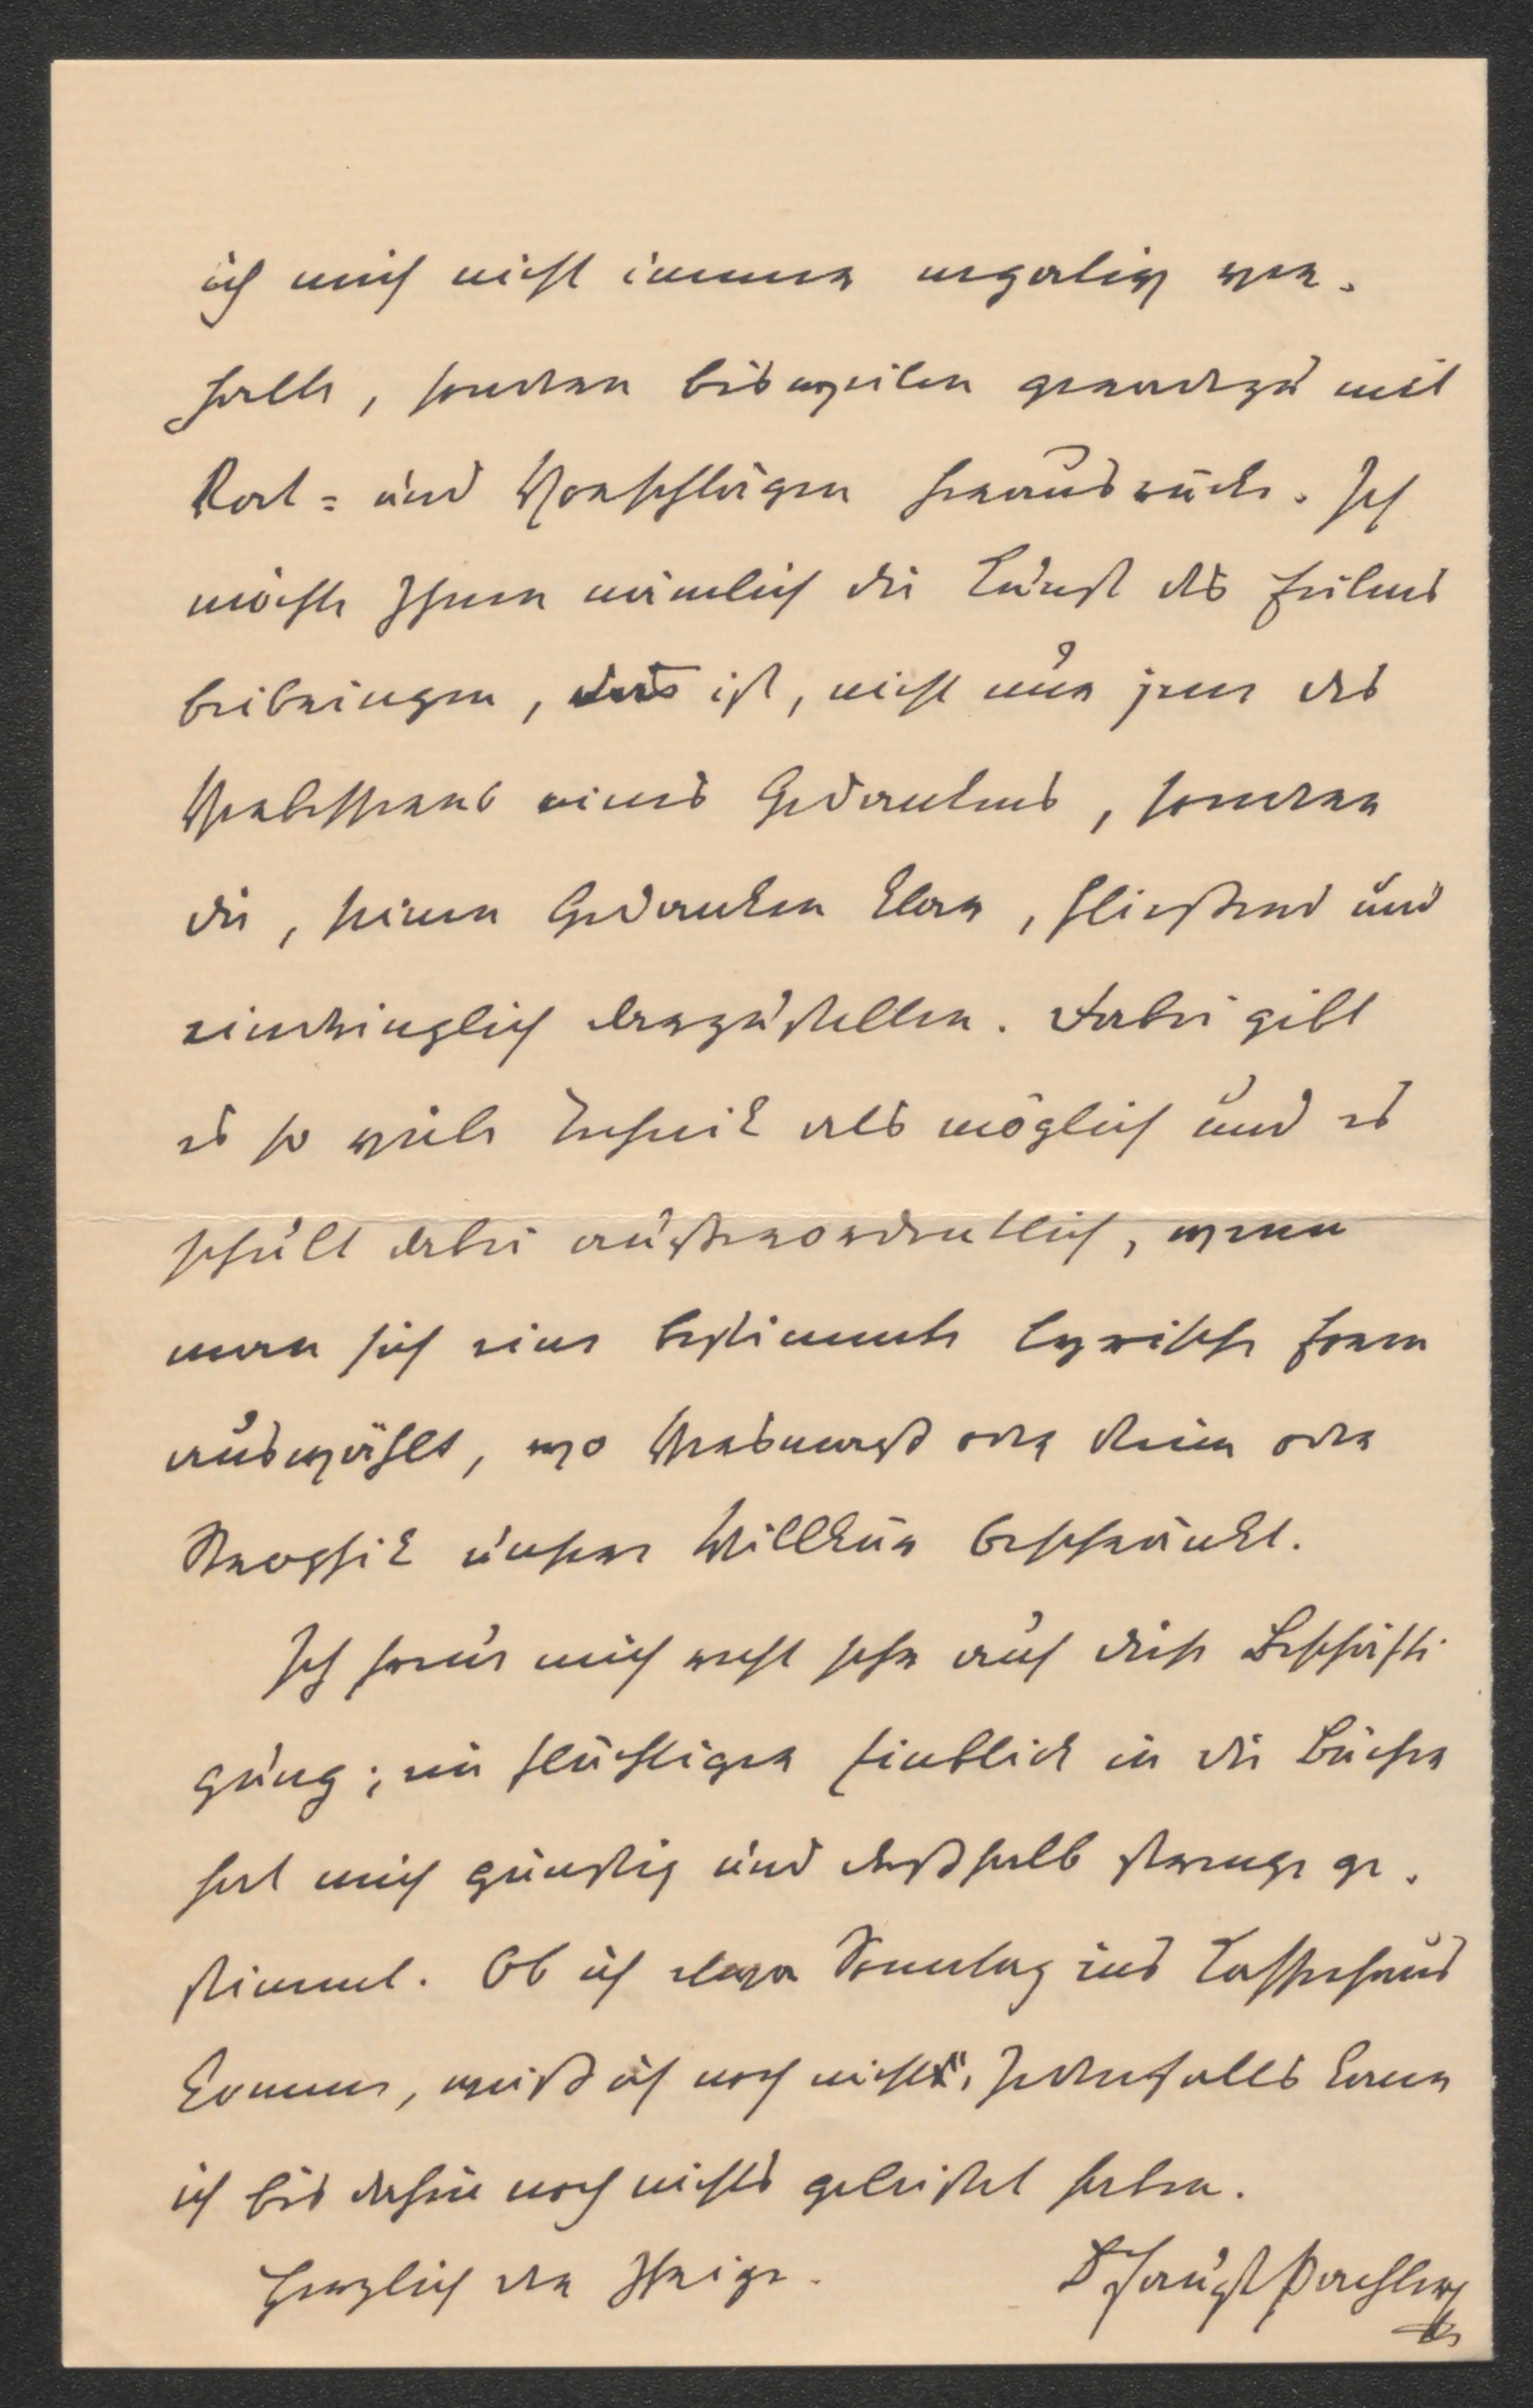 ich mich nicht immer negativ ver-
halte, sondern bisweilen geradezu mit
Rat- und Vorschlägen herausrücke. Ich
möchte Ihnen nämlich die Kunst des Feilens
beibringen, das ist, nicht nur jene des
Verbesserns eines Gedankens, sondern
die, seinen Gedanken klar, fließend und
eindringlich darzustellen. Dabei gibt
es so viele Technik als möglich und es
schult dabei außerordentlich, wenn
man sich eine bestimmte lyrische Form
auswählt, wo Versmaß oder Reim oder
Strophik unsere Willkür beschränkt.
Ich freue mich recht sehr auf diese Beschäfti-
gung; ein flüchtiger Einblick in die Bücher
hat mich günstig und deßhalb strenge ge-
stimmt. Ob ich Sonntag ins Kaffeehaus
komme, weiß ich noch nicht, jedenfalls kann
ich bis dahin noch nichts geleistet haben.
Herzlich der Ihrige.
D Faust Pachler